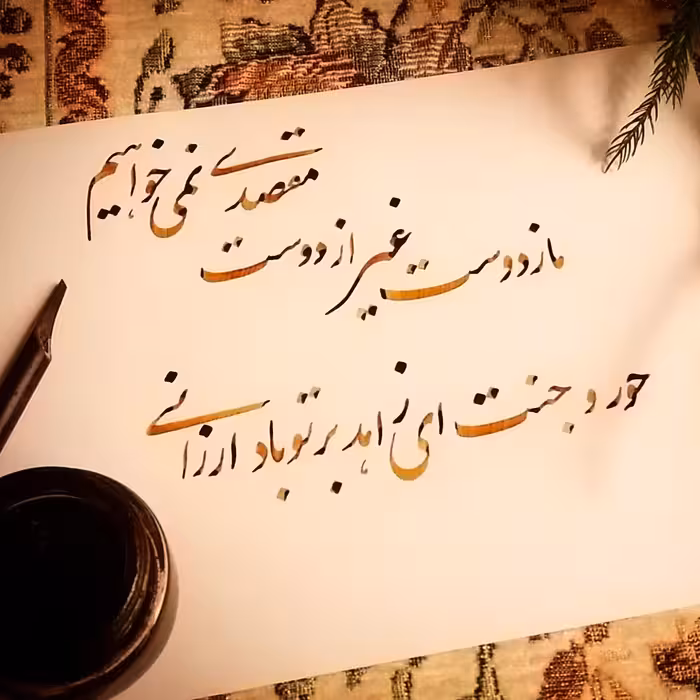 ما ز دوست غیر از دوست
مقصدی نمی خواهیم
حور و جنت ای زاهد بر تو باد ارزانی